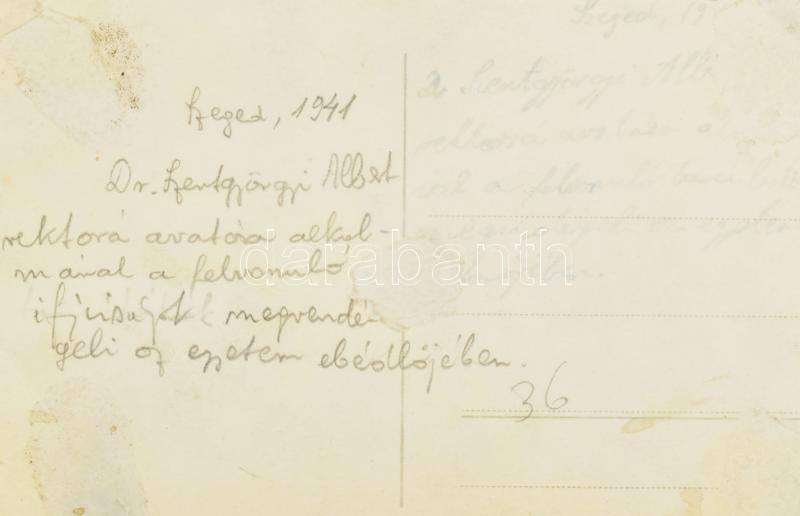 Szeged, 1941
Dr. Szentgyörgyi Albert
rektorá avatása alkal-
mával a felvonuló
ifjúságot megvendé-
geli az egyetem ebédlőjében.
36
Szeged, 19
Dr Szentgyörgyi Alb
rektorrá avatása
val a felvonuló
darabanth